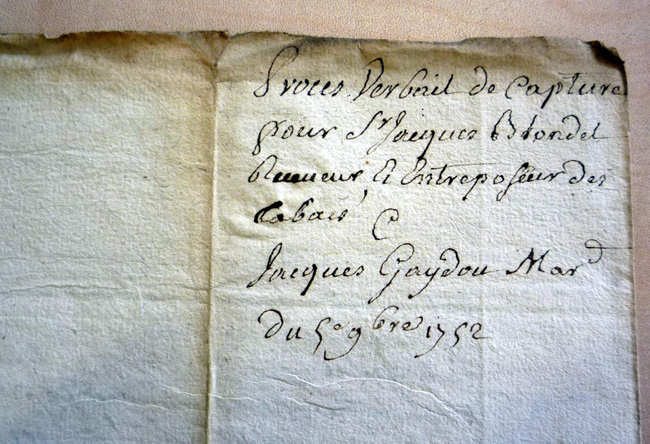 Proces Verbail de Capture
pour Sr Jacques Blondel
Receveur Et Entreposeur des
tabacs C
Jacques Gaydou Mard
du 5e 9bre 1752